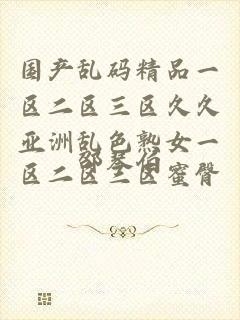 国产乱码精品一
区二区三区久久
亚洲乱色熟女一
区二区三区蜜臀
邵琴伯